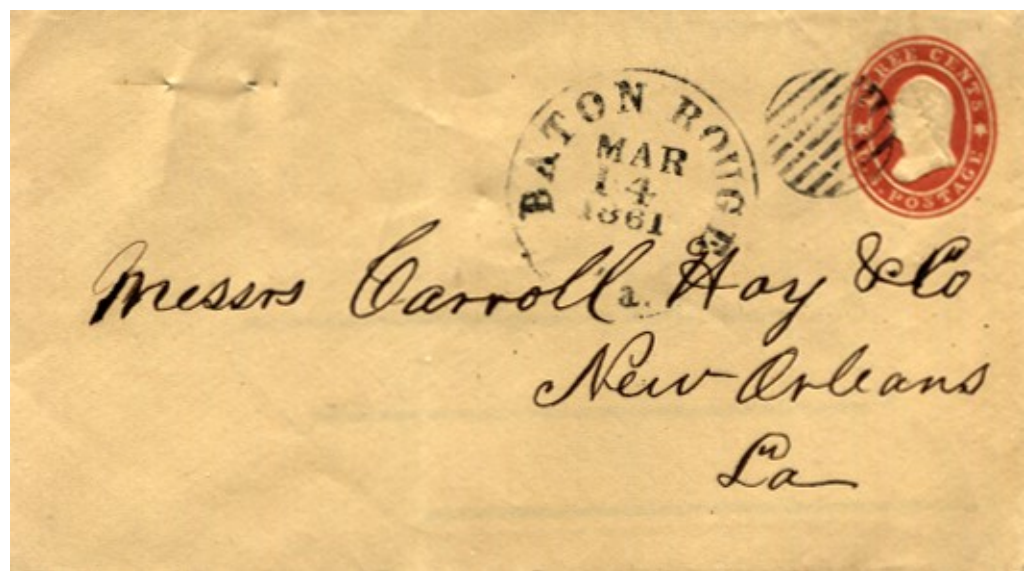 THREE CENTS
U.S. POSTAGE
BATON ROUGE
MAR
14
1861
a.
Messrs Carroll Hoy & Co
New Orleans
La